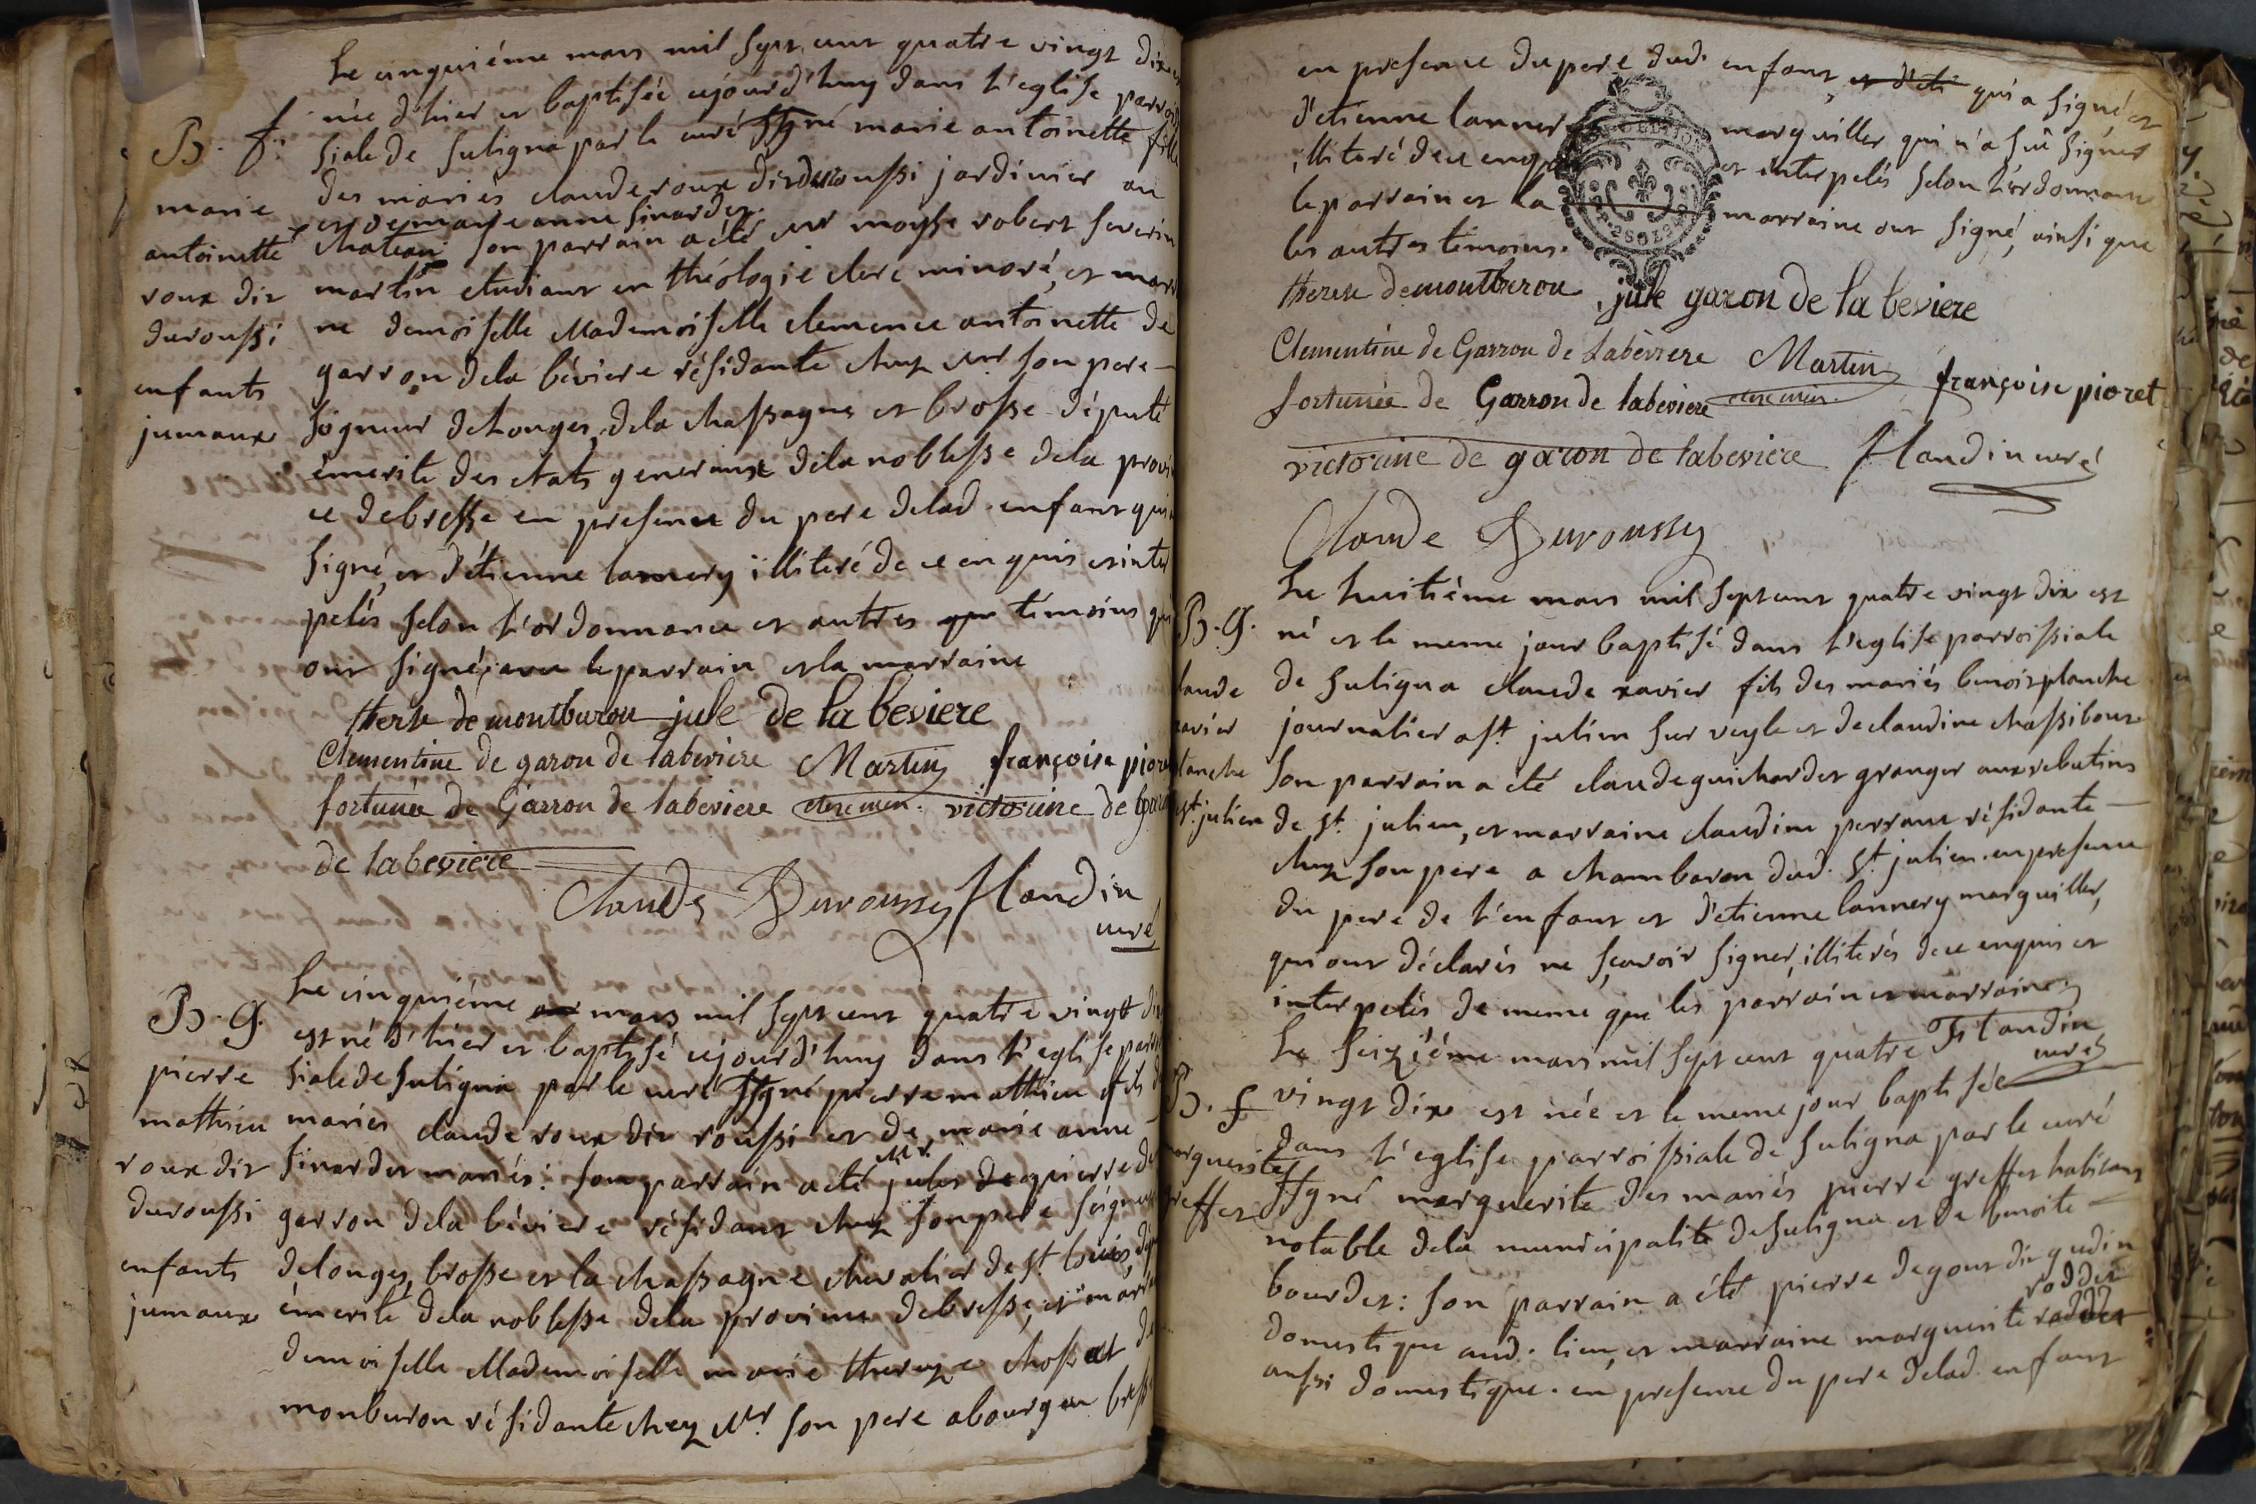 Le cinquiéme mars mil sept cent quatre vingt dix est
née d'hier et baptisée cejourd'huy dans l'eglise parrois
siale de suligna par le curé ssgné marie antoinette fille
des mariés claude roux dit duroussi jardinier au
et de marie anne sinardet.
chateau son parrain a été mr moyse robert severin
martin etudiant en théologie clerc minoré, et marr
ne demoiselle Mademoiselle clemence antoinette de
garron dela béviere résidante chez mr son pere
seigneur de Longes, dela chassagne et brosse député
émerite des etats generaux dela noblesse dela provin
ce de bresse en presence du pere delad. enfant qui a
signé, et d'étienne lannery illiteré de ce enquis et inter
pelés selon l'ordonnance et autres temoins qui
ont signé, avec le parrain et la marraine
therese de montburon jule de la beviere
Clementine de garon de labeviere Martin françoise pioret
fortunée de Garron de labeviere clerc min. victorine de garon
de labeviere
Claude Duroussy Flandin
curé
B. f.
marie
antoinette
roux dit
duroussi
enfants
jumaux
Le cinquiéme mars mil sept cent quatre vingt dix
est né d'hier et baptisé cejourd'huy dans l'eglise parrois
siale de suligna par le curé ssgné pierre mathieu fils des
mariés claude roux dit roussi et de marie anne
sinardet mariés: son parrain a été mr. jules pierre de
garron dela béviere résidant chez son pere seigneur
delonges, brosse et la chassagne chevalier de st. Louis, député
émerite dela noblesse dela province de bresse, et marraine
demoiselle Mademoiselle marie therese chossat de
monburon résidante chez Mr. son pere abourg en bresse
B. G.
pierre
mathieu
roux dit
duroussi
enfants
jumaux
en presence du pere dud. enfant, et d'eti qui a signé et
d'etienne lannery marguiller qui n'a sçu signer
illiteré de ce enquis et interpelés selon l'ordonnance
le parrain et la marraine ont signé, ainsi que
les autres temoins.
therese demontburon jule garon de la beviere
Clementine de Garron de Labeviere Martin françoise pioret
fortunée de Garron de labeviere clerc min.
victorine de garon de labeviere Flandin curé
Claude Duroussy
Le huitiéme mars mil sept cent quatre vingt dix est
né et le meme jour baptisé dans l'eglise parroissiale
de suligna claude xavier fils des mariés benoit planche
journalier a st. julien sur veyle et de claudine chassibout
son parrain a été claude guichardet granger aux rebutins
de st. julien, et marraine claudine perraud résidante
chez son pere a chambaron dud. st. julien. en presence
du pere de l'enfant et d'etienne lannery marguiller,
qui ont déclarés ne sçavoir signer, illiterés de ce enquis et
interpelés de meme que les parrain et marraine
Flandin
curé
B. G.
laude
xavier
lanche
st. julien
Le seiziéme mars mil sept cent quatre
vingt dix est née et le meme jour baptisée
dans l'eglise parroissiale de suligna par le curé
ssgné marguerite des mariés pierre greffet habitant
notable dela municipalité de suligna et de benoite
bourdet: son parrain a été pierre degout dit gudin
roddet
domestique aud. lieu, et marraine marguerite
aussi domestique. en presence du pere delad. enfant
B. f
arguerite
reffet